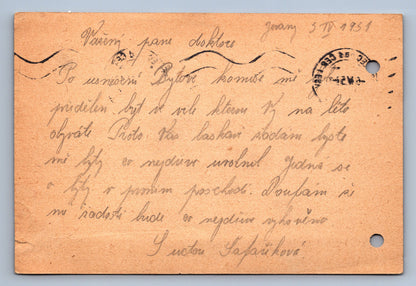 Jevany 5 IV 1951
Vážený pane doktore
Po usnešení Bytové komise mě
přidělen byt ve vile kterou Vy na léto
obýváte Proto Vás laskavě žádám byste
mě byty co nejdříve uvolnil Jedná se
o byty v prvním poschodí. Doufám si
mé žádosti bude co nejdříve vyhověno
S úctou Šafaříková